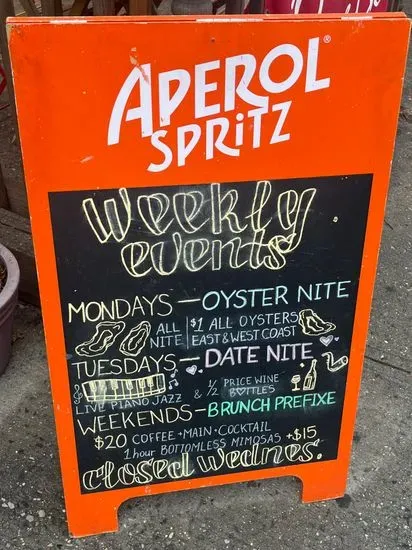 APEROL®
SPRiTZ
Weekly
events
MONDAYS — OYSTER NITE
ALL NITE $1 ALL OYSTERS EAST & WEST COAST
TUESDAYS — DATE NITE
LIVE PIANO JAZZ & 1/2 PRICE WINE BOTTLES
WEEKENDS - BRUNCH PREFIXE
$20 COFFEE + MAIN + COCKTAIL
1 hour BOTTOMLESS MIMOSAS +$15
closed Wednes.